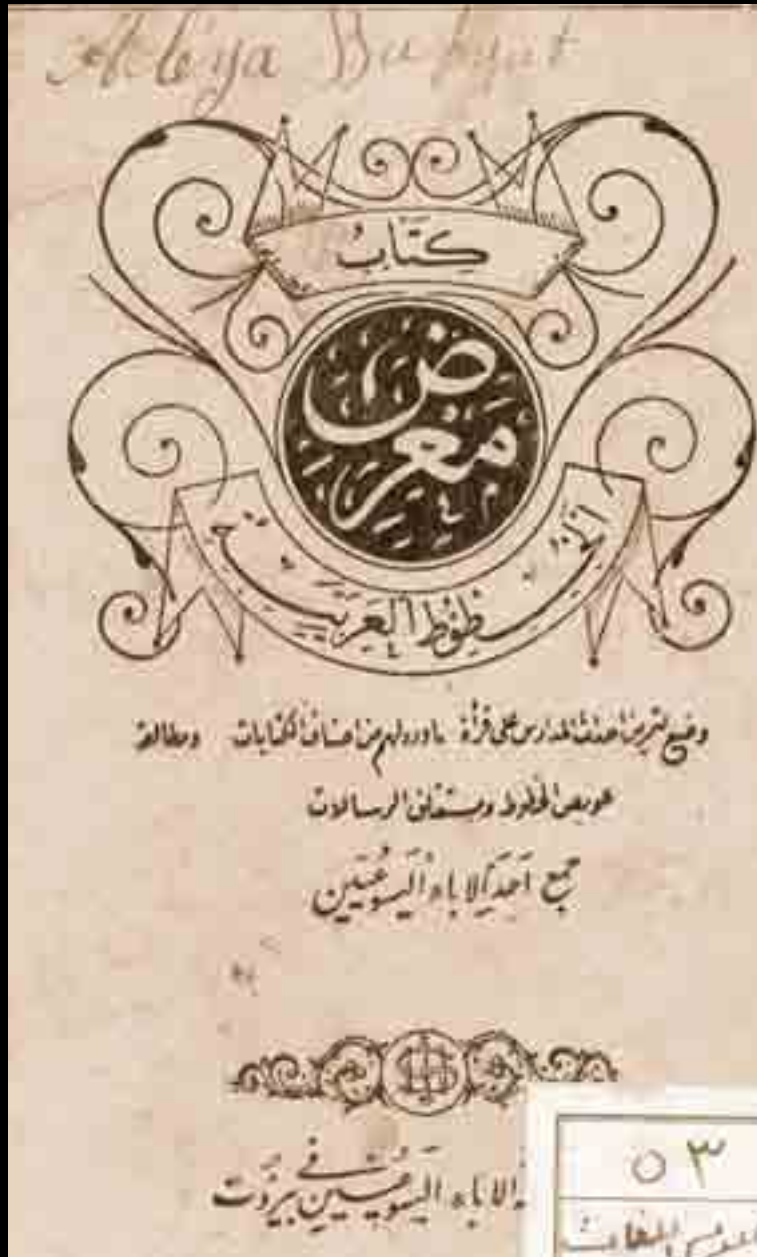 كِتَابُ
مَعْرِض
الخطوط العربية
وضع لتمرين احداث المدارس على قرأة ما ورد لهم من اصناف الكتابات ومطالعة
عويص الخطوط ومستغلق الرسالات
جمع احد الاباء اليسوعيين
الاباء اليسوعيين في بيروت
٥٣